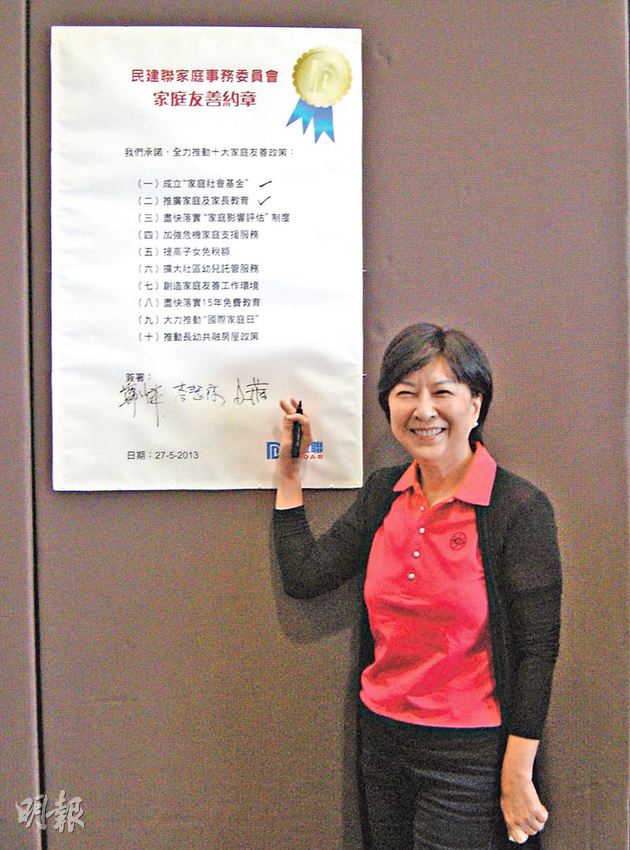 民建聯家庭事務委員會
家庭友善約章
我們承諾，全力推動十大家庭友善政策：
（一）成立“家庭社會基金”
（二）推廣家庭及家長教育
（三）盡快落實“家庭影響評估”制度
（四）加強危機家庭支援服務
（五）提高子女免稅額
（六）擴大社區幼兒託管服務
（七）創造家庭友善工作環境
（八）盡快落實15年免費教育
（九）大力推動“國際家庭日”
（十）推動長幼共融房屋政策
簽署：
日期：27-5-2013
聯
明報